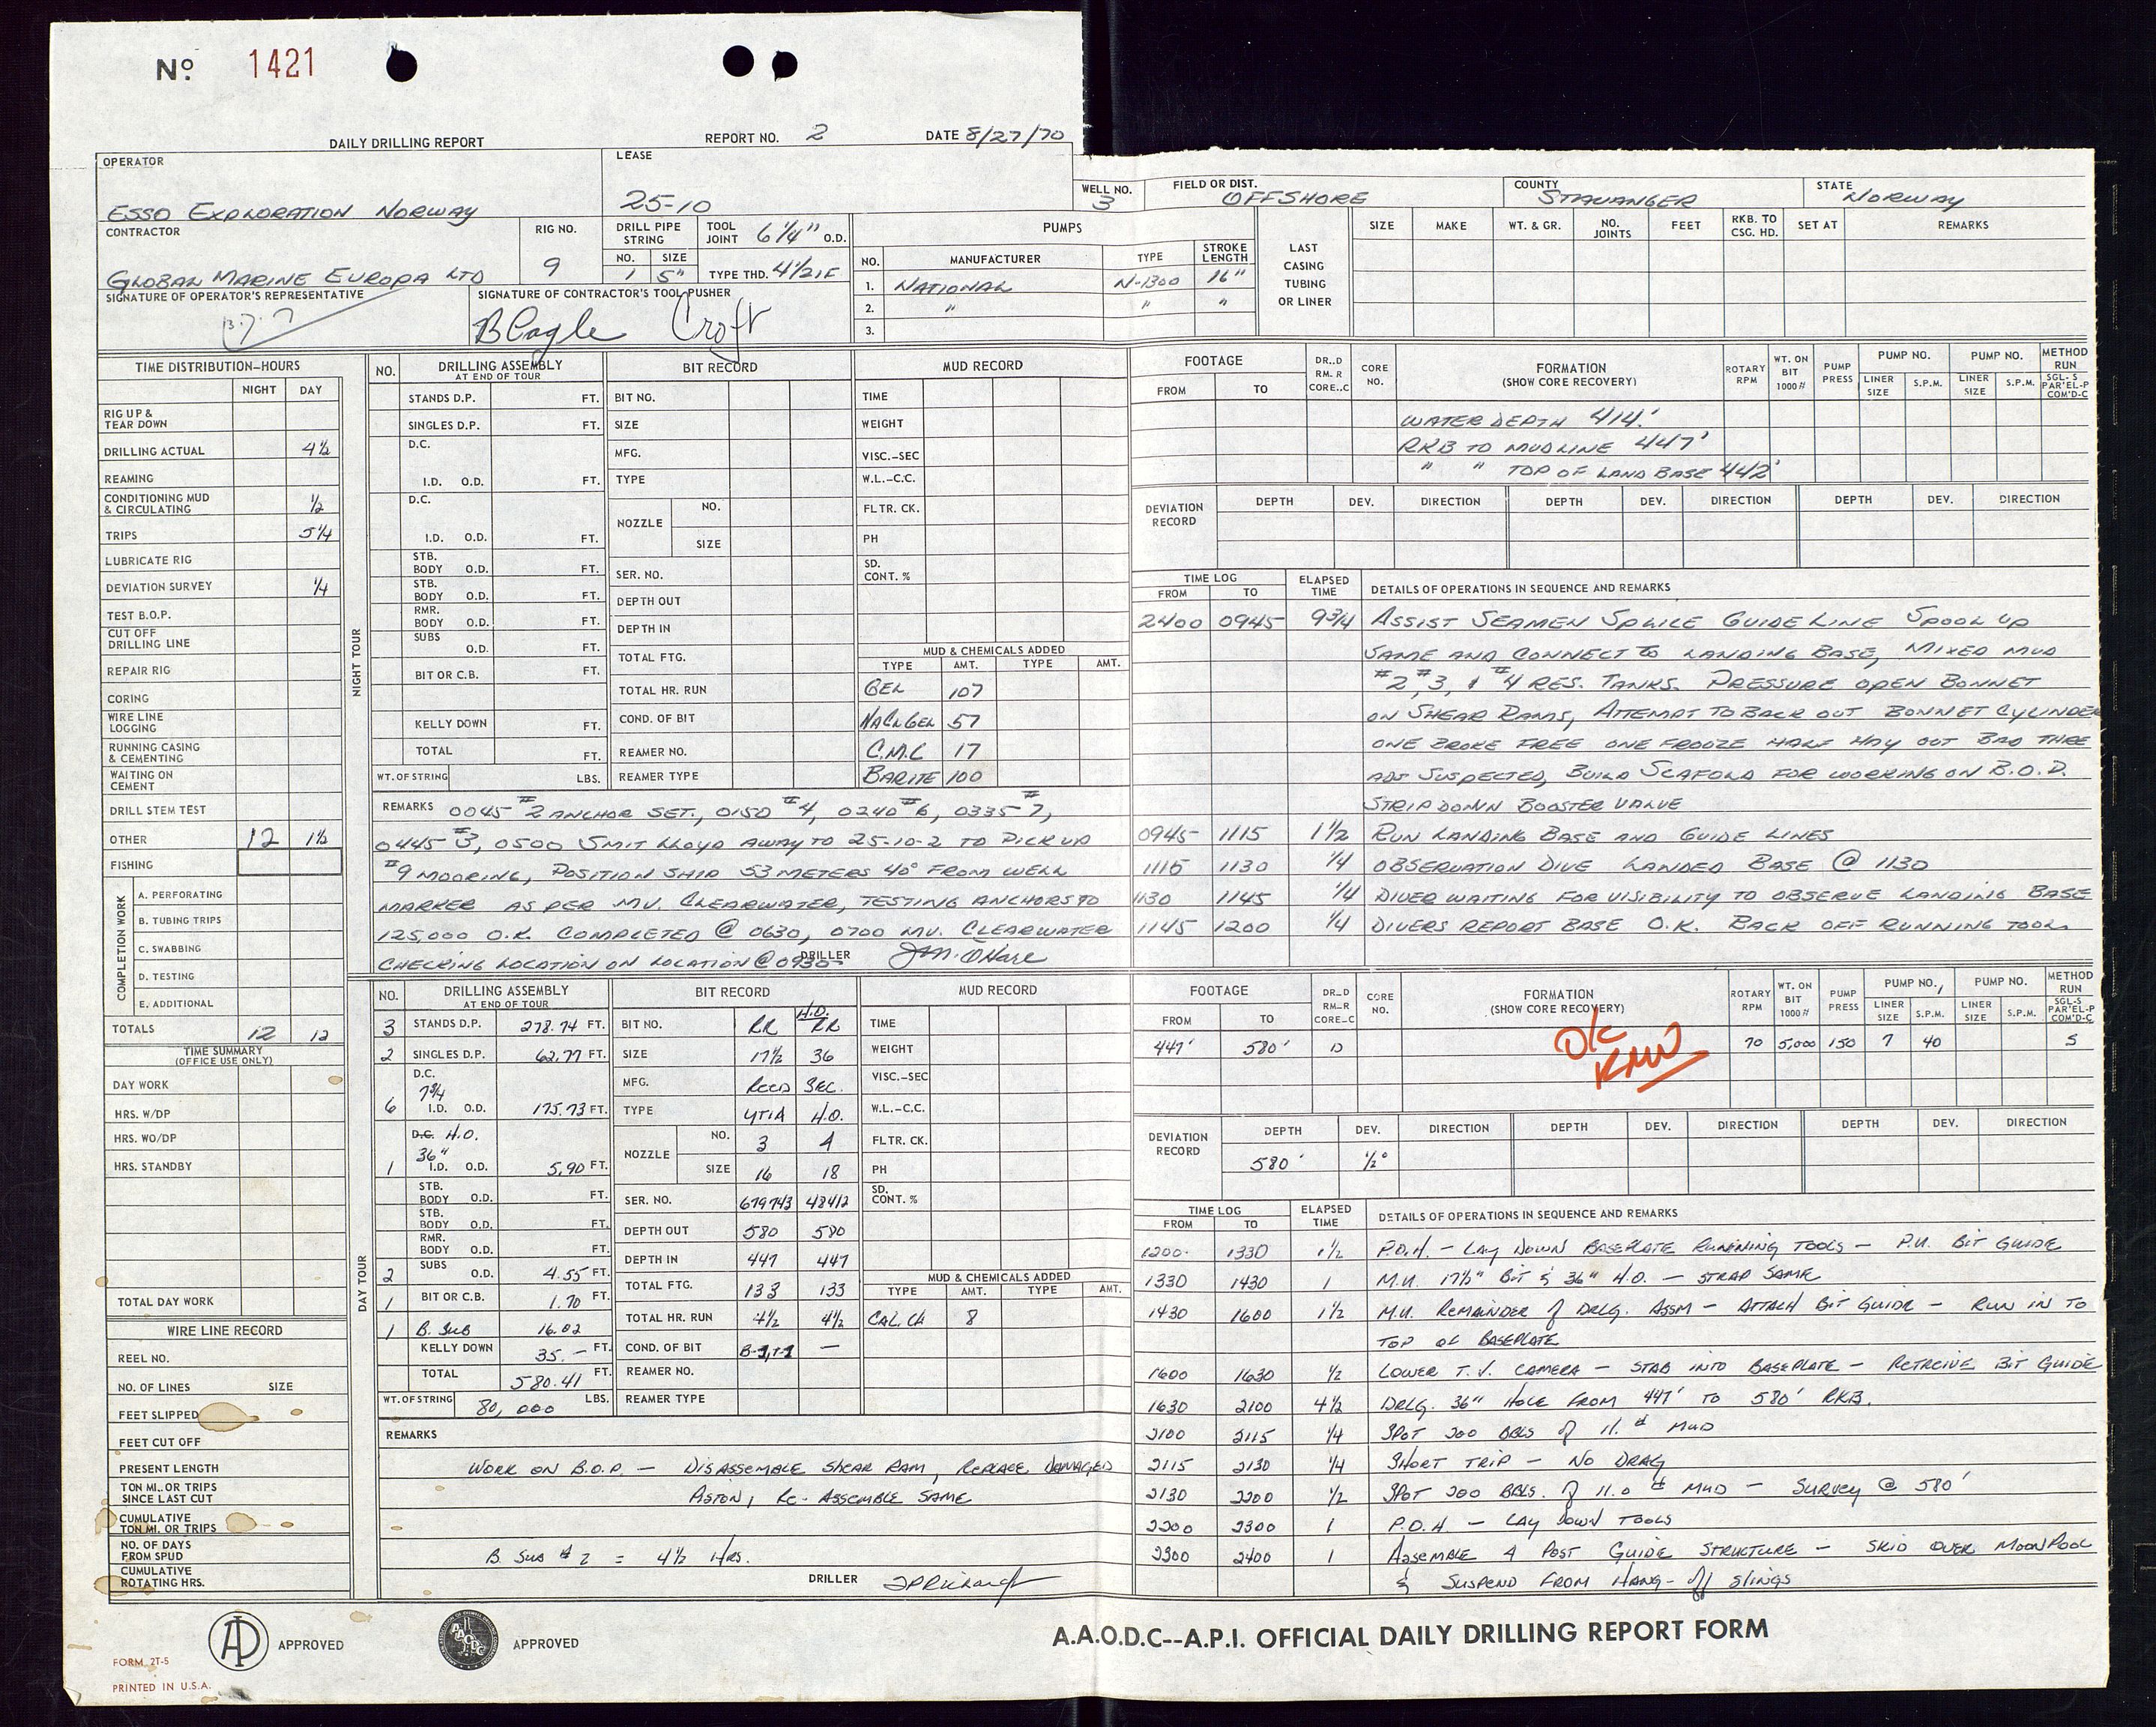 Nº 1421
DAILY DRILLING REPORT REPORT NO. 2 DATE 8/27/70
OPERATOR LEASE WELL NO. FIELD OR DIST. COUNTY STATE
ESSO EXPLORATION NORWAY 25-10 3 OFFSHORE STAVANGER NORWAY
CONTRACTOR RIG NO. DRILL PIPE STRING TOOL JOINT 6 1/4" O.D. PUMPS
GLOBAL MARINE EUROPA LTD 9 NO. SIZE 1 5" TYPE THD. 4 1/2 IF
NO. MANUFACTURER TYPE STROKE LENGTH
1. NATIONAL N-1300 16"
2. " " "
3.
LAST CASING TUBING OR LINER
SIZE MAKE WT. & GR. NO. JOINTS FEET RKB. TO CSG. HD. SET AT REMARKS
SIGNATURE OF OPERATOR'S REPRESENTATIVE SIGNATURE OF CONTRACTOR'S TOOL PUSHER
B Cagle Croft
TIME DISTRIBUTION-HOURS
NIGHT DAY
RIG UP & TEAR DOWN
DRILLING ACTUAL 4 1/2
REAMING
CONDITIONING MUD & CIRCULATING 1/2
TRIPS 5 1/4
LUBRICATE RIG
DEVIATION SURVEY 1/4
TEST B.O.P.
CUT OFF DRILLING LINE
REPAIR RIG
CORING
WIRE LINE LOGGING
RUNNING CASING & CEMENTING
WAITING ON CEMENT
DRILL STEM TEST
OTHER 12 1 1/2
FISHING
COMPLETION WORK
A. PERFORATING
B. TUBING TRIPS
C. SWABBING
D. TESTING
E. ADDITIONAL
TOTALS 12 12
TIME SUMMARY (OFFICE USE ONLY)
DAY WORK
HRS. W/DP
HRS. WO/DP
HRS. STANDBY
TOTAL DAY WORK
WIRE LINE RECORD
REEL NO.
NO. OF LINES SIZE
FEET SLIPPED
FEET CUT OFF
PRESENT LENGTH
TON MI. OR TRIPS SINCE LAST CUT
CUMULATIVE TON MI. OR TRIPS
NO. OF DAYS FROM SPUD
CUMULATIVE ROTATING HRS.
NIGHT TOUR
NO. DRILLING ASSEMBLY AT END OF TOUR
STANDS D.P. FT.
SINGLES D.P. FT.
D.C. I.D. O.D. FT.
D.C. I.D. O.D. FT.
STB. BODY O.D. FT.
STB. BODY O.D. FT.
RMR. BODY O.D. FT.
SUBS O.D. FT.
BIT OR C.B. FT.
KELLY DOWN FT.
TOTAL FT.
WT. OF STRING LBS.
BIT RECORD
BIT NO.
SIZE
MFG.
TYPE
NOZZLE NO. SIZE
SER. NO.
DEPTH OUT
DEPTH IN
TOTAL FTG.
TOTAL HR. RUN
COND. OF BIT
REAMER NO.
REAMER TYPE
MUD RECORD
TIME
WEIGHT
VISC.-SEC
W.L.-C.C.
FLTR. CK.
PH
SD. CONT. %
MUD & CHEMICALS ADDED
TYPE AMT. TYPE AMT.
GEL 107
NACLGEL 57
C.M.C 17
BARITE 100
REMARKS 0045 #2 ANCHOR SET., 0150 #4, 0240 #6, 0335 #7,
0445 #3, 0500 SMIT LLOYD AWAY TO 25-10-2 TO PICK UP
#9 MOORING, POSITION SHIP 53 METERS 40° FROM WELL
MARKER AS PER MV. CLEARWATER, TESTING ANCHORS TO
125,000 O.K. COMPLETED @ 0630, 0700 MV. CLEARWATER
CHECKING LOCATION ON LOCATION @ 0930 DRILLER J.M. O'Hare
FOOTAGE FROM TO DR..D RM. R CORE..C CORE NO. FORMATION (SHOW CORE RECOVERY) ROTARY RPM WT. ON BIT 1000# PUMP PRESS PUMP NO. LINER SIZE S.P.M. PUMP NO. LINER SIZE S.P.M. METHOD RUN SGL-S PAR'EL-P COM'D-C
WATER DEPTH 414'
RKB TO MUDLINE 447'
" " TOP OF LAND BASE 442'
DEVIATION RECORD DEPTH DEV. DIRECTION DEPTH DEV. DIRECTION DEPTH DEV. DIRECTION
TIME LOG FROM TO ELAPSED TIME DETAILS OF OPERATIONS IN SEQUENCE AND REMARKS
2400 0945 9 3/4 ASSIST SEAMEN SPLICE GUIDE LINE SPOOL UP
SAME AND CONNECT TO LANDING BASE, MIXED MUD
#2, #3, & #4 RES. TANKS. PRESSURE OPEN BONNET
ON SHEAR RAMS, ATTEMPT TO BACK OUT BONNET CYLINDER
ONE BROKE FREE ONE FROOZE HALF WAY OUT BAD THRE
ADS SUSPECTED, BUILD SCAFOLD FOR WORKING ON B.O.P.
STRIP DOWN BOOSTER VALVE
0945 1115 1 1/2 RUN LANDING BASE AND GUIDE LINES
1115 1130 1/4 OBSERVATION DIVE LANDED BASE @ 1130
1130 1145 1/4 DIVER WAITING FOR VISIBILITY TO OBSERVE LANDING BASE
1145 1200 1/4 DIVERS REPORT BASE O.K. BACK OFF RUNNING TOOL.
DAY TOUR
NO. DRILLING ASSEMBLY AT END OF TOUR
3 STANDS D.P. 278.74 FT.
2 SINGLES D.P. 62.77 FT.
6 D.C. 7 3/4 I.D. O.D. 175.73 FT.
1 D.C. H.O. 36" I.D. O.D. 5.90 FT.
STB. BODY O.D. FT.
STB. BODY O.D. FT.
RMR. BODY O.D. FT.
2 SUBS O.D. 4.55 FT.
1 BIT OR C.B. 1.70 FT.
1 B. SUB 16.02
KELLY DOWN 35.- FT.
TOTAL 580.41 FT.
WT. OF STRING 80,000 LBS.
BIT RECORD H.O.
BIT NO. RR RR
SIZE 17 1/2 36
MFG. REED SEC.
TYPE YT1A H.O.
NOZZLE NO. 3 4
SIZE 16 18
SER. NO. 679743 48412
DEPTH OUT 580 580
DEPTH IN 447 447
TOTAL FTG. 133 133
TOTAL HR. RUN 4 1/2 4 1/2
COND. OF BIT B-1, T-1 —
REAMER NO.
REAMER TYPE
MUD RECORD
TIME
WEIGHT
VISC.-SEC
W.L.-C.C.
FLTR. CK.
PH
SD. CONT. %
MUD & CHEMICALS ADDED
TYPE AMT. TYPE AMT.
CAL. CL 8
REMARKS
WORK ON B.O.P. — DISASSEMBLE SHEAR RAM, REPLACE DAMAGED
PISTON, RE-ASSEMBLE SAME
B SUB #2 = 4 1/2 HRS.
DRILLER
FOOTAGE FROM TO DR_D RM_R CORE_C CORE NO. FORMATION (SHOW CORE RECOVERY) ROTARY RPM WT. ON BIT 1000# PUMP PRESS PUMP NO. 1 LINER SIZE S.P.M. PUMP NO. LINER SIZE S.P.M. METHOD RUN SGL-S PAR'EL-P COM'D-C
447' 580' D 70 5,000 150 7 40 S
O/K KMW
DEVIATION RECORD DEPTH DEV. DIRECTION DEPTH DEV. DIRECTION DEPTH DEV. DIRECTION
580' 1/2°
TIME LOG FROM TO ELAPSED TIME DETAILS OF OPERATIONS IN SEQUENCE AND REMARKS
1200 1330 1 1/2 P.O.H. — LAY DOWN BASEPLATE RUNNING TOOLS — P.U. BIT GUIDE
1330 1430 1 M.U. 17 1/2" BIT & 36" H.O. — STRAP SAME
1430 1600 1 1/2 M.U. REMAINDER of DRLG. ASSM — ATTACH BIT GUIDE — RUN IN TO
TOP OF BASEPLATE
1600 1630 1/2 LOWER T.V. CAMERA — STAB INTO BASEPLATE — RETREIVE BIT GUIDE
1630 2100 4 1/2 DRLG. 36" HOLE FROM 447' TO 580' RKB.
2100 2115 1/4 SPOT 200 BBLS of 11.# MUD
2115 2130 1/4 SHORT TRIP — NO DRAG
2130 2200 1/2 SPOT 200 BBLS. of 11.0# MUD — SURVEY @ 580'
2200 2300 1 P.O.H. — LAY DOWN TOOLS
2300 2400 1 ASSEMBLE 4 POST GUIDE STRUCTURE — SKID OVER MOONPOOL
& SUSPEND FROM HANG-off SLINGS
API APPROVED AAODC APPROVED A.A.O.D.C--A.P.I. OFFICIAL DAILY DRILLING REPORT FORM
FORM 2T-5
PRINTED IN U.S.A.